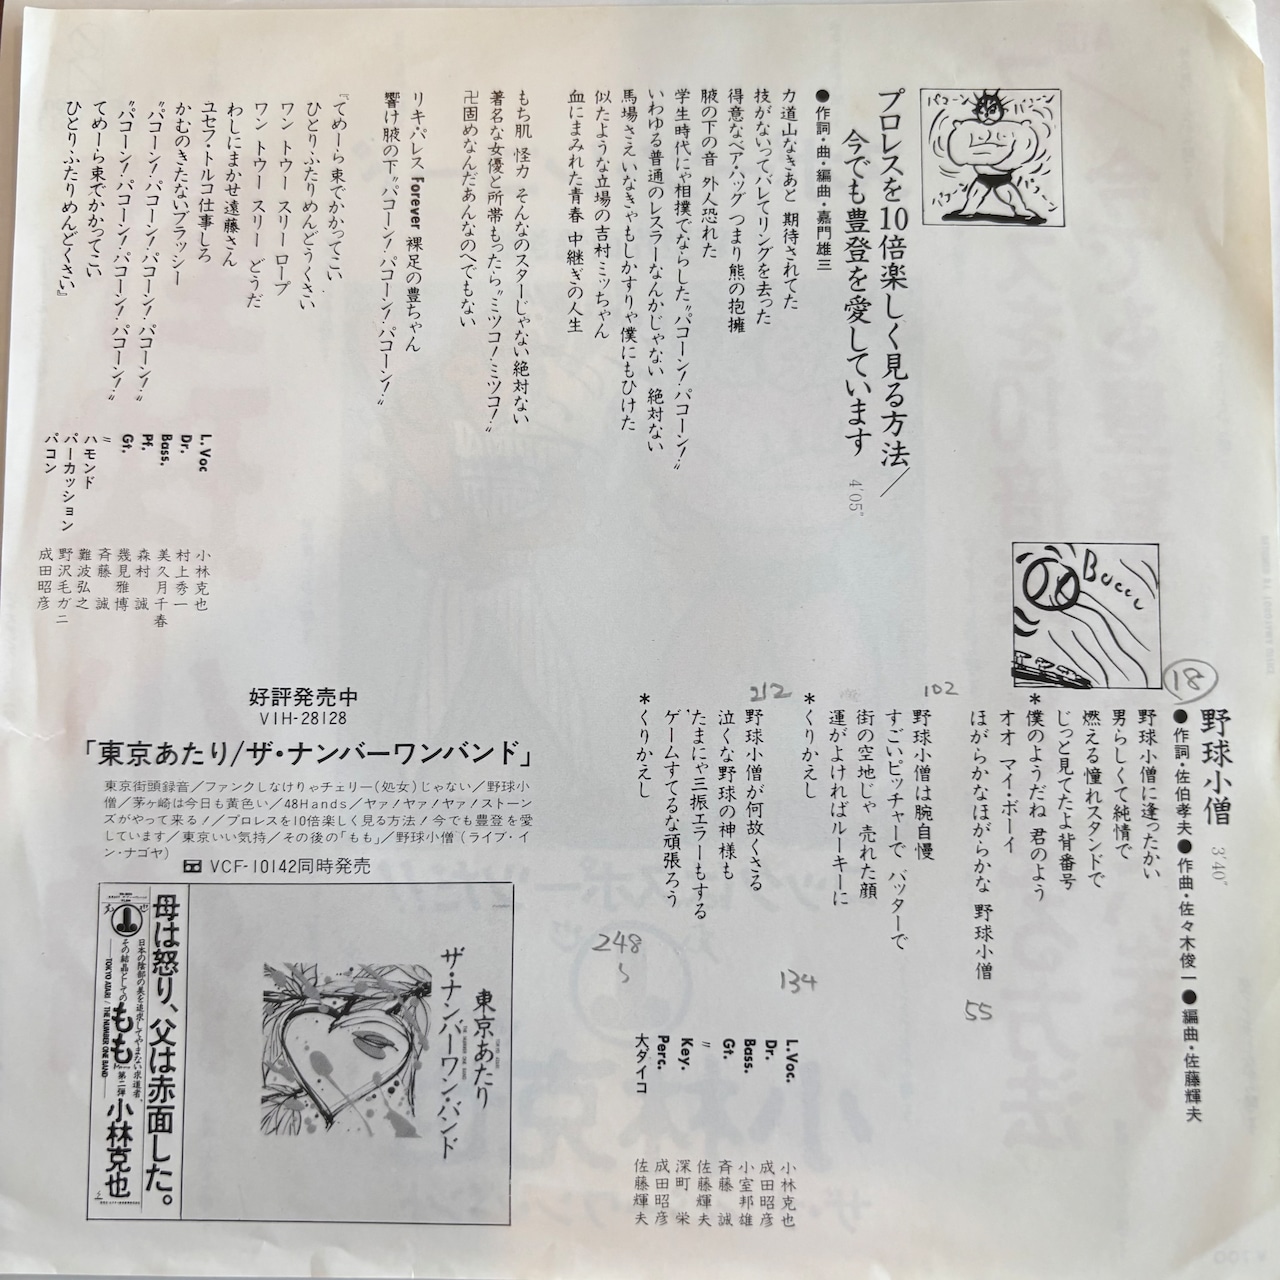 パコーン
パコーン
パコーン
パコーン
プロレスを10倍楽しく見る方法/
今でも豊登を愛しています 4'05"
●作詞・曲・編曲・嘉門雄三
力道山なきあと 期待されてた
技がないってバレてリングを去った
得意なベア・ハッグ つまり熊の抱擁
腋の下の音 外人恐れた
学生時代にゃ相撲でならした"パコーン!パコーン!"
いわゆる普通のレスラーなんかじゃない 絶対ない
馬場さえいなきゃもしかすりゃ僕にもひけた
似たような立場の吉村ミッちゃん
血にまみれた青春 中継ぎの人生
もち肌 怪力 そんなのスターじゃない絶対ない
著名な女優と所帯もったら"ミツコ!ミツコ!"
卍固めなんだあんなのへでもない
リキ・パレス Forever 裸足の豊ちゃん
響け腋の下"パコーン!パコーン!パコーン!"
『てめーら束でかかってこい
ひとりふたりめんどうくさい
ワン トウー スリー ロープ
ワン トウー スリー どうだ
わしにまかせ遠藤さん
ユセフ・トルコ仕事しろ
かむのきたないブラッシー
"パコーン!パコーン!パコーン!パコーン!"
"パコーン!パコーン!パコーン!パコーン!"
てめーら束でかかってこい
ひとりふたりめんどくさい』
L.Voc 小林克也
Dr. 村上秀一
Bass. 美久月千春
Pf. 森村 誠
Gt. 幾見雅博
〃 斉藤 誠
ハモンド 難波弘之
パーカッション 野沢毛ガニ
パコン 成田昭彦
Buccc
18
野球小僧 3'40"
●作詞・佐伯孝夫●作曲・佐々木俊一●編曲・佐藤輝夫
野球小僧に逢ったかい
男らしくて純情で
燃える憧れスタンドで
じっと見てたよ背番号
*僕のようだね 君のよう
オオ マイ・ボーイ
ほがらかなほがらかな 野球小僧
55
102
野球小僧は腕自慢
すごいピッチャーで バッターで
街の空地じゃ 売れた顔
運がよければルーキーに
*くりかえし
134
212
野球小僧が何故くさる
泣くな野球の神様も
たまにゃ三振エラーもする
ゲームすてるな頑張ろう
*くりかえし
248
〜
L.Voc. 小林克也
Dr. 成田昭彦
Bass. 小室邦雄
Gt. 斉藤 誠
〃 佐藤輝夫
Key. 深町 栄
Perc. 成田昭彦
大ダイコ 佐藤輝夫
好評発売中
VIH-28128
「東京あたり/ザ・ナンバーワンバンド」
東京街頭録音/ファンクしなけりゃチェリー(処女)じゃない/野球小
僧/茅ヶ崎は今日も黄色い/48Hands/ヤァ!ヤァ!ヤァ!ストーン
ズがやって来る!/プロレスを10倍楽しく見る方法!今でも豊登を愛
しています/東京いい気持/その後の「もも」/野球小僧(ライブ・イ
ン・ナゴヤ)
VCF-10142同時発売
東京あたり
ザ・ナンバーワン・バンド
母は怒り、父は赤面した。
日本の陰部の美を追求してやまない求道者、
その結晶としてのもも第二弾 小林克也
TOKYO ATARI / THE NUMBER ONE BAND